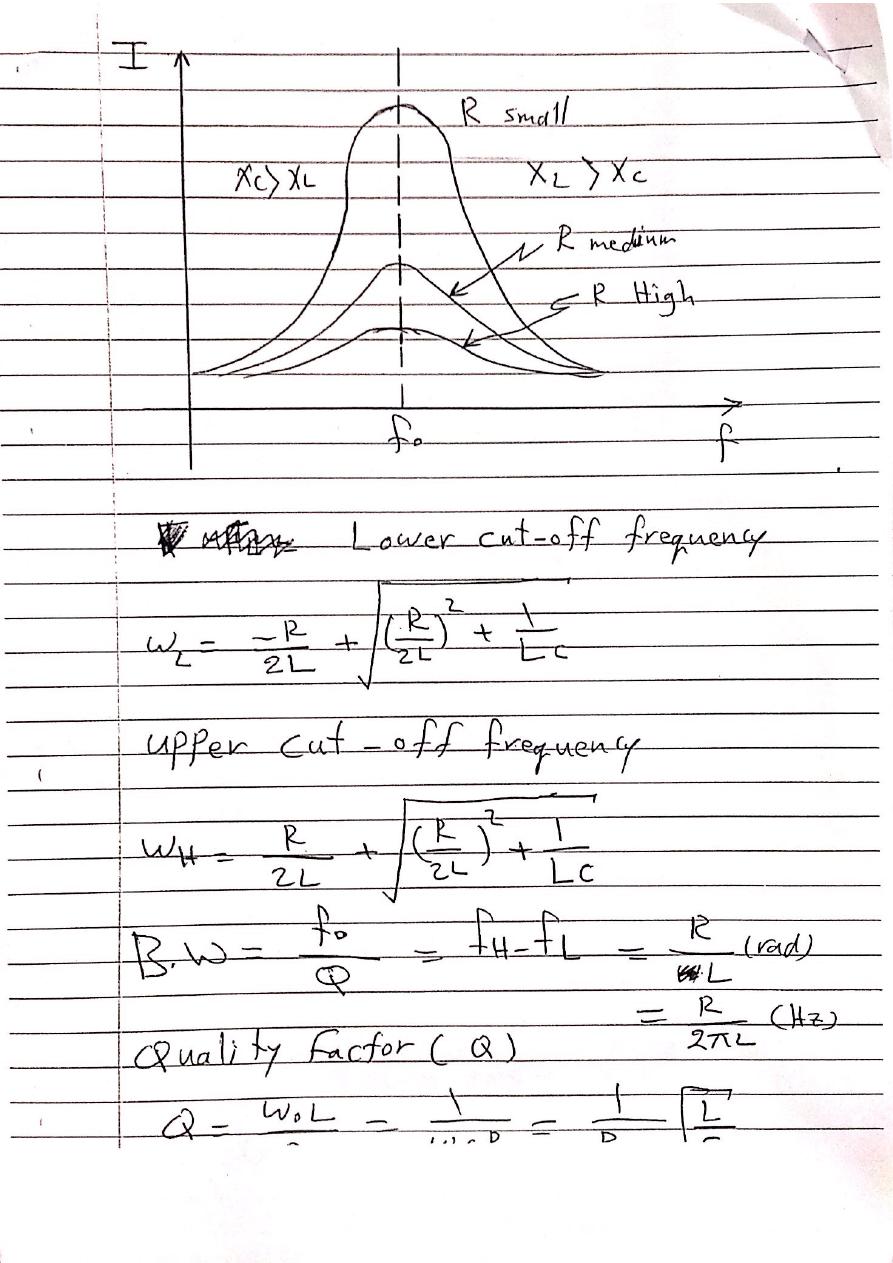 I
R small
XC > XL
XL > XC
R medium
R High
f₀
f
Lower cut-off frequency
ω_L = -R/2L + √((R/2L)² + 1/LC)
upper cut-off frequency
ω_H = R/2L + √((R/2L)² + 1/LC)
B.W = f₀/Q = fH - fL = R/L (rad)
= R/2πL (Hz)
Quality factor (Q)
Q = ω₀L = 1 = 1/R √L